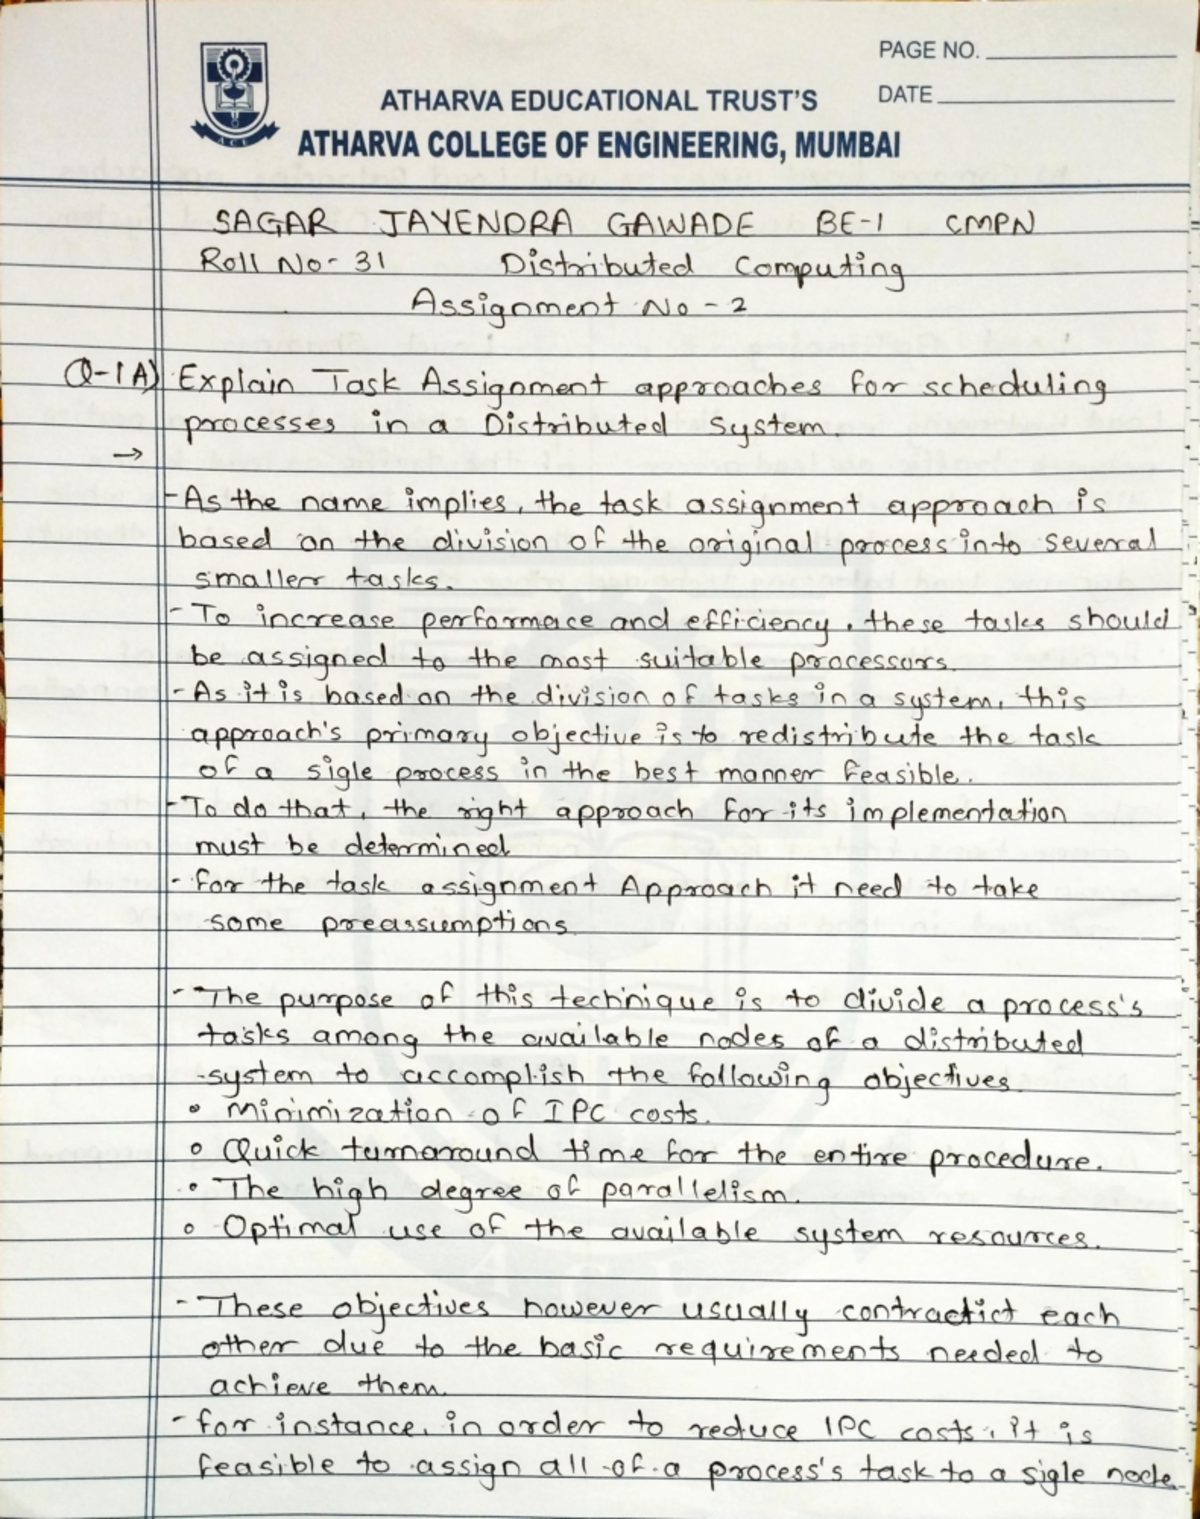 PAGE NO.
DATE
ATHARVA EDUCATIONAL TRUST'S
ATHARVA COLLEGE OF ENGINEERING, MUMBAI
ACE
SAGAR JAYENDRA GAWADE BE-1 CMPN
Roll No- 31 Distributed Computing
Assignment No - 2
Q-1A) Explain Task Assignment approaches for scheduling
processes in a Distributed System.
→
- As the name implies, the task assignment approach is
based on the division of the original process into several
smaller tasks.
- To increase performace and efficiency, these tasks should
be assigned to the most suitable processors.
- As it is based on the division of tasks in a system, this
approach's primary objective is to redistribute the task
of a sigle process in the best manner feasible.
- To do that, the right approach for its implementation
must be determined
- for the task assignment Approach it need to take
some preassumptions.
- The purpose of this technique is to divide a process's
tasks among the available nodes of a distributed
system to accomplish the following objectives.
• Minimization of IPC costs.
• Quick turnaround time for the entire procedure.
• The high degree of parallelism.
• Optimal use of the available system resources.
- These objectives however usually contractict each
other due to the basic requirements needed to
achieve them.
- for instance, in order to reduce IPC costs, it is
feasible to assign all of a process's task to a sigle node.